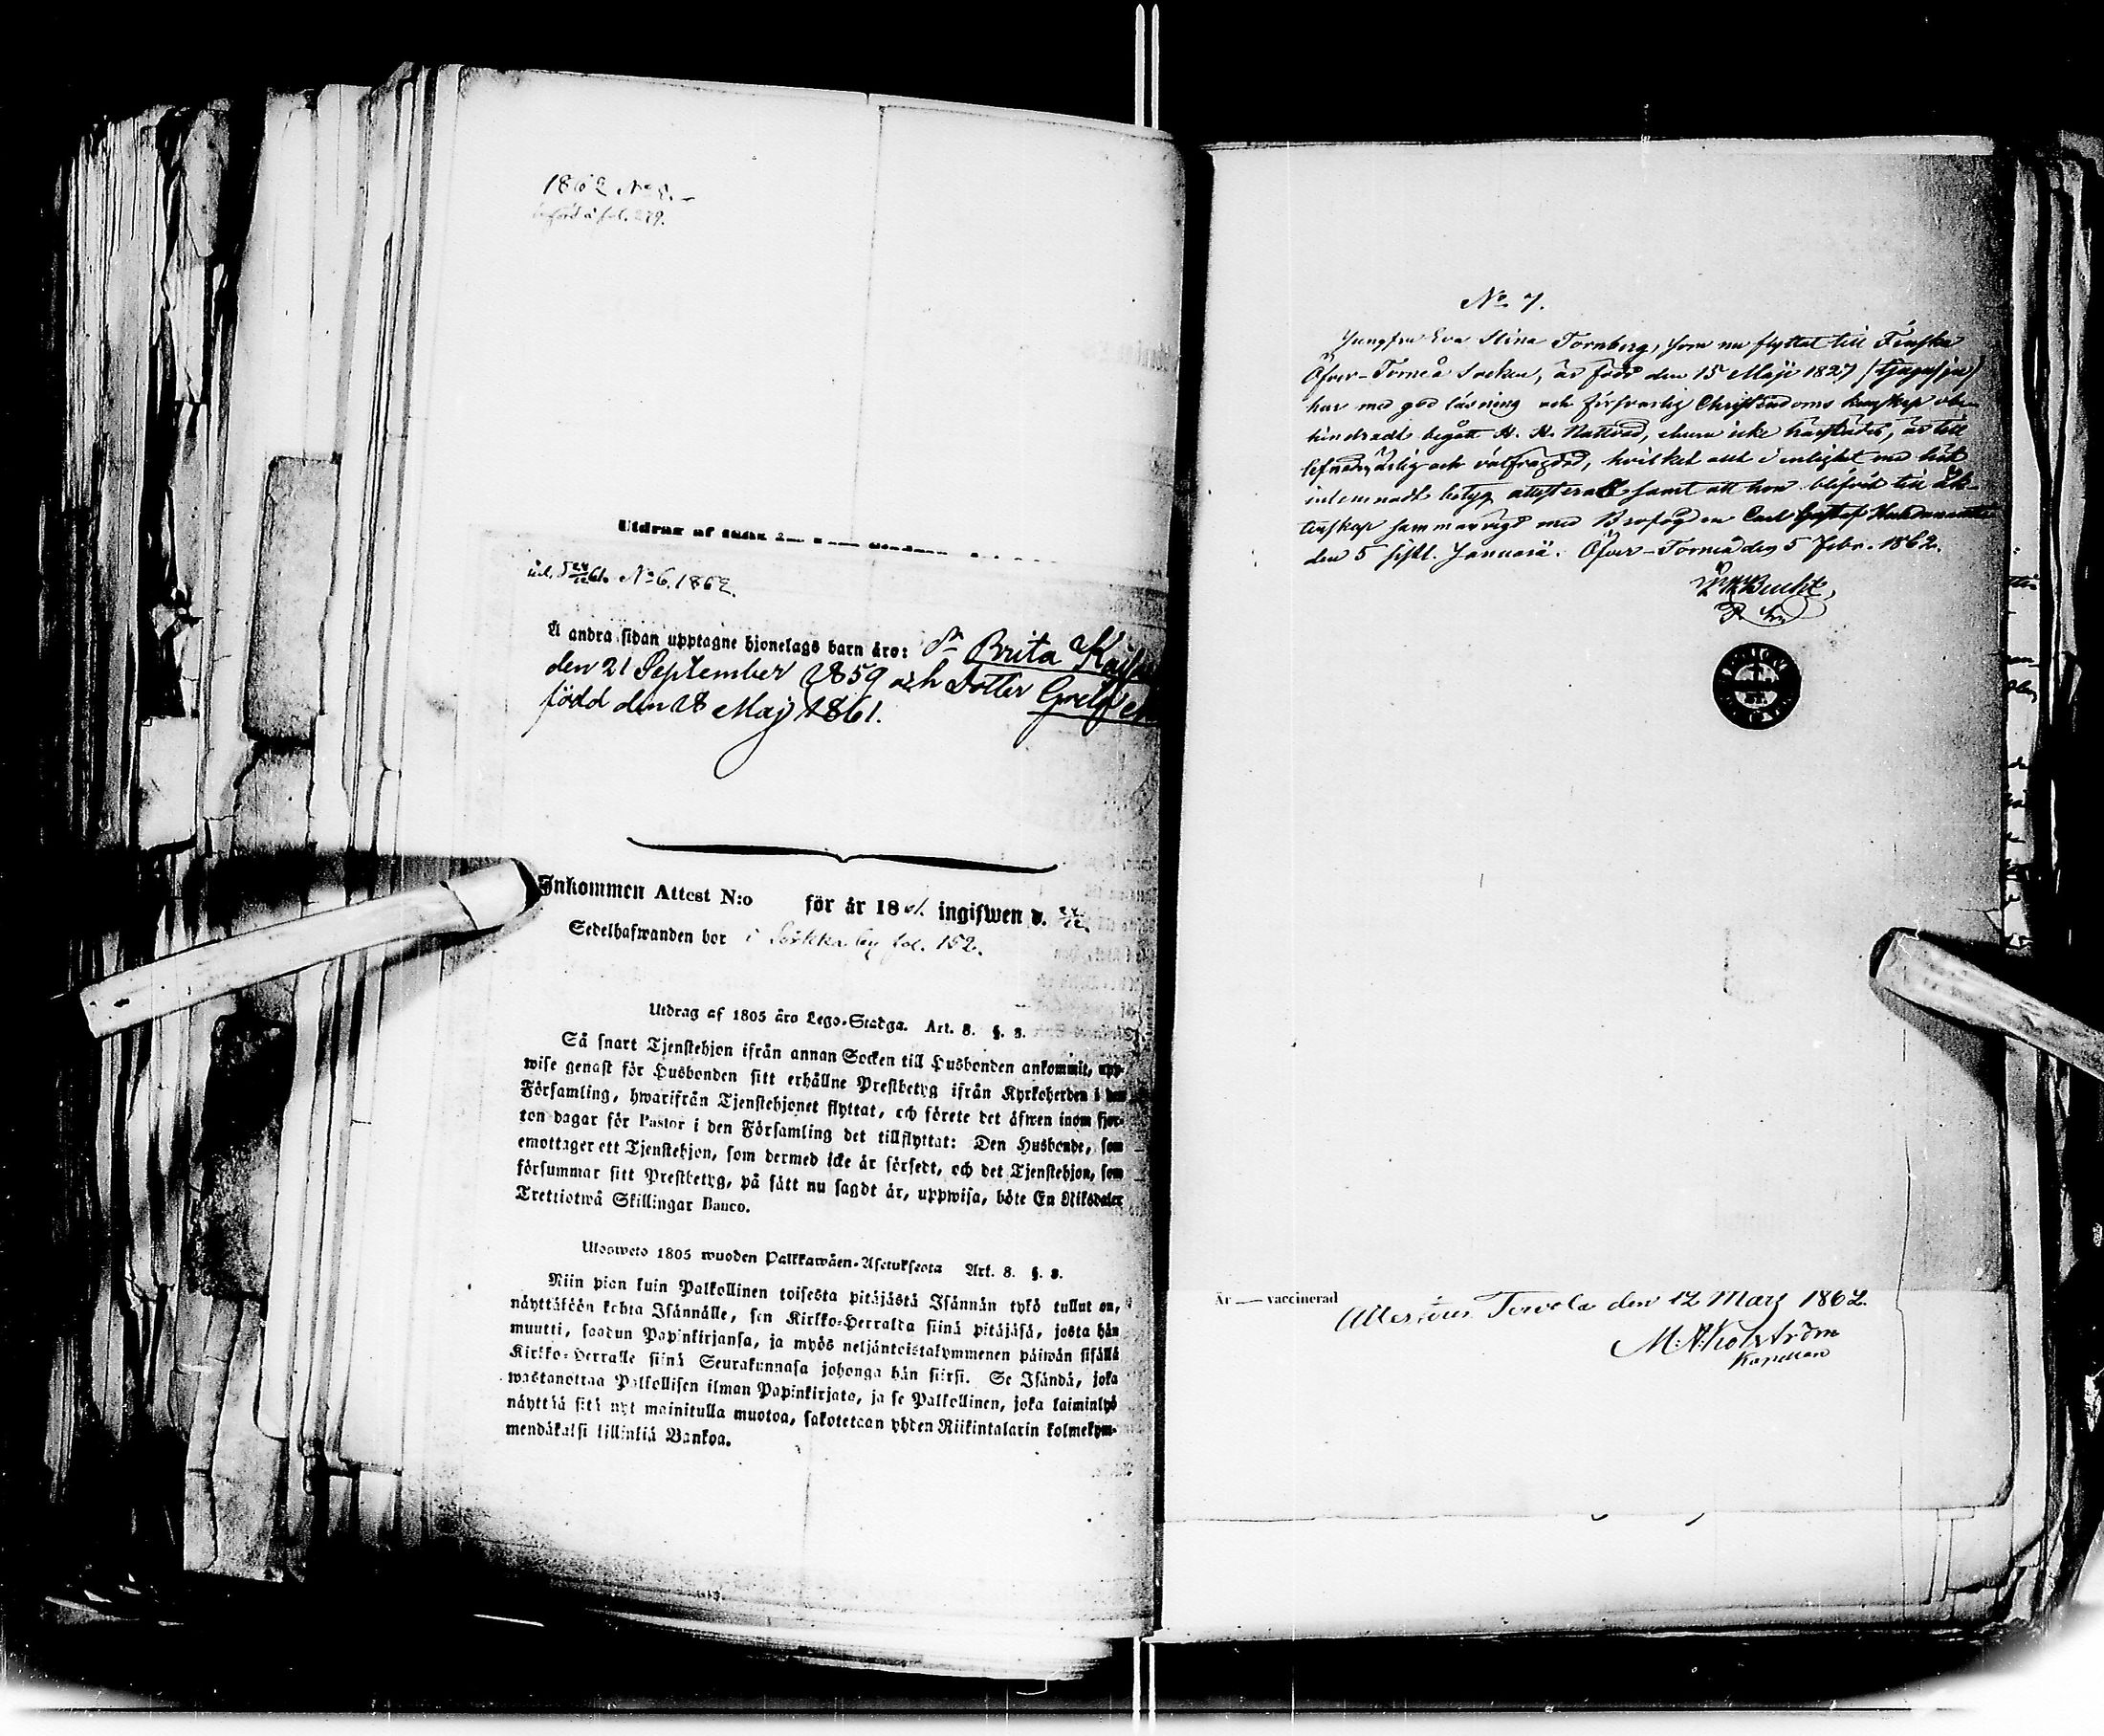 1862 No 5.
införd å fol. 279.
Utdrag af 1805 års
inl. d. 24/12 61. No 6. 1862.
Å andra sidan upptagne hjonelags barn äro: Dr Brita Kajsa
den 21 September 1859 och dotter Greta
född den 28 Maj 1861.
Inkommen Attest N:o för år 1861. ingifwen d. 24/12.
Sedelhafwanden bor i by fol. 152.
Utdrag af 1805 års Lego-Stadga. Art. 8. §. 8.
Så snart Tjenstehjon ifrån annan Socken till Husbonden ankommit, upp-
wise genast för Husbonden sitt erhållne Prestbetyg ifrån Kyrkoherden i den
Församling, hwarifrån Tjenstehjonet flyttat, och förete det äfwen inom fjor-
ton dagar för Pastor i den Församling det tillflyttat: Den Husbonde, som
emottager ett Tjenstehjon, som dermed icke är försedt, och det Tjenstehjon, som
försummar sitt Prestbetyg, på sätt nu sagdt är, uppwisa, böte En Riksdaler
Trettiotwå Skillingar Banco.
Ulosweto 1805 wuoden Palkkawäen-Asetuksesta Art. 8. §. 8.
Niin pian kuin Palkollinen toisesta pitäjästä Isännän tykö tullut on,
näyttäköön kohta Isännälle, sen Kirkko-Herralta siinä pitäjäsä, josta hän
muutti, saadun Papinkirjansa, ja myös neljäntoistakymmenen päiwän sisällä
Kirkko-Herralle siinä Seurakunnasa johonga hän siirsi. Se Isändä, joka
wastanottaa Palkollisen ilman Papinkirjata, ja se Palkollinen, joka laiminlyö
näyttää sitä nyt mainitulla muotoa, sakotetaan yhten Riikintalarin kolmekym-
mendäkaksi killinkiä Bankoa.
No 7.
Jungfru Eva Stina Tornberg, som nu flyttat till Finska
Öfver-Torneå Socken, är född den 15 Maji 1827
har med god läsning och försvarlig Christendoms kunskap obe-
hindradt begått H. H. Nattvard, ehuru icke, är till
lefnaden ärlig och välfrägdad, hvilket allt i enlighet med hit
inlemnadt betyg attesteras samt att hon blifvit till äk-
tenskap sammanvigd med Brofogden Carl Gustaf
den 5 sistl. Januarii. Öfver-Torneå den 5 Febr. 1862.
Är — vaccinerad
Attesteras Tervola den 12 Mars 1862.
M. A. Holmström
Kapellan